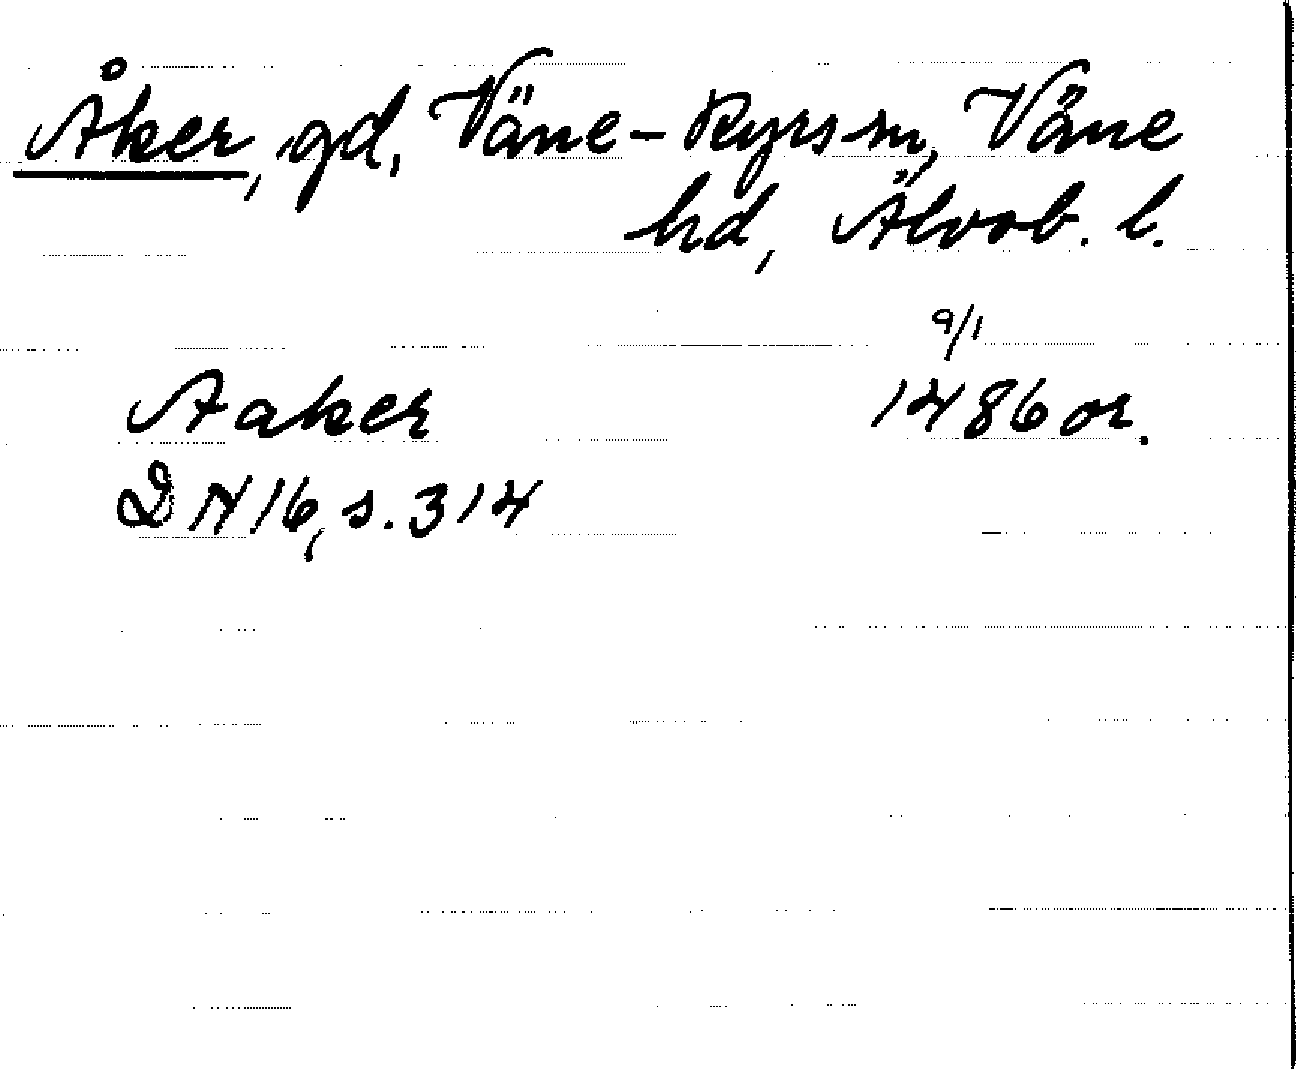 Åker, gd, Väne-Ryrs sn, Väne
hd, Älvsb. l.
9/1
Aaker 1486 or.
DN 16, s. 314